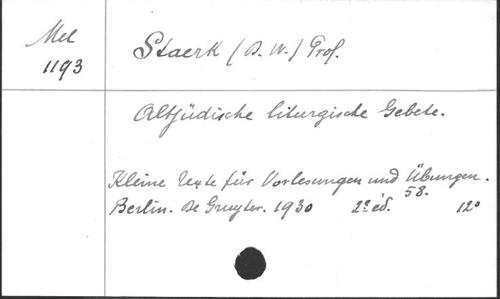 Mel
1193
Staerk (D. W.) Prof.
Altjüdische liturgische Gebete.
Kleine Texte für Vorlesungen und Übungen.
58.
Berlin. De Gruyter. 1930 2e éd. 12°